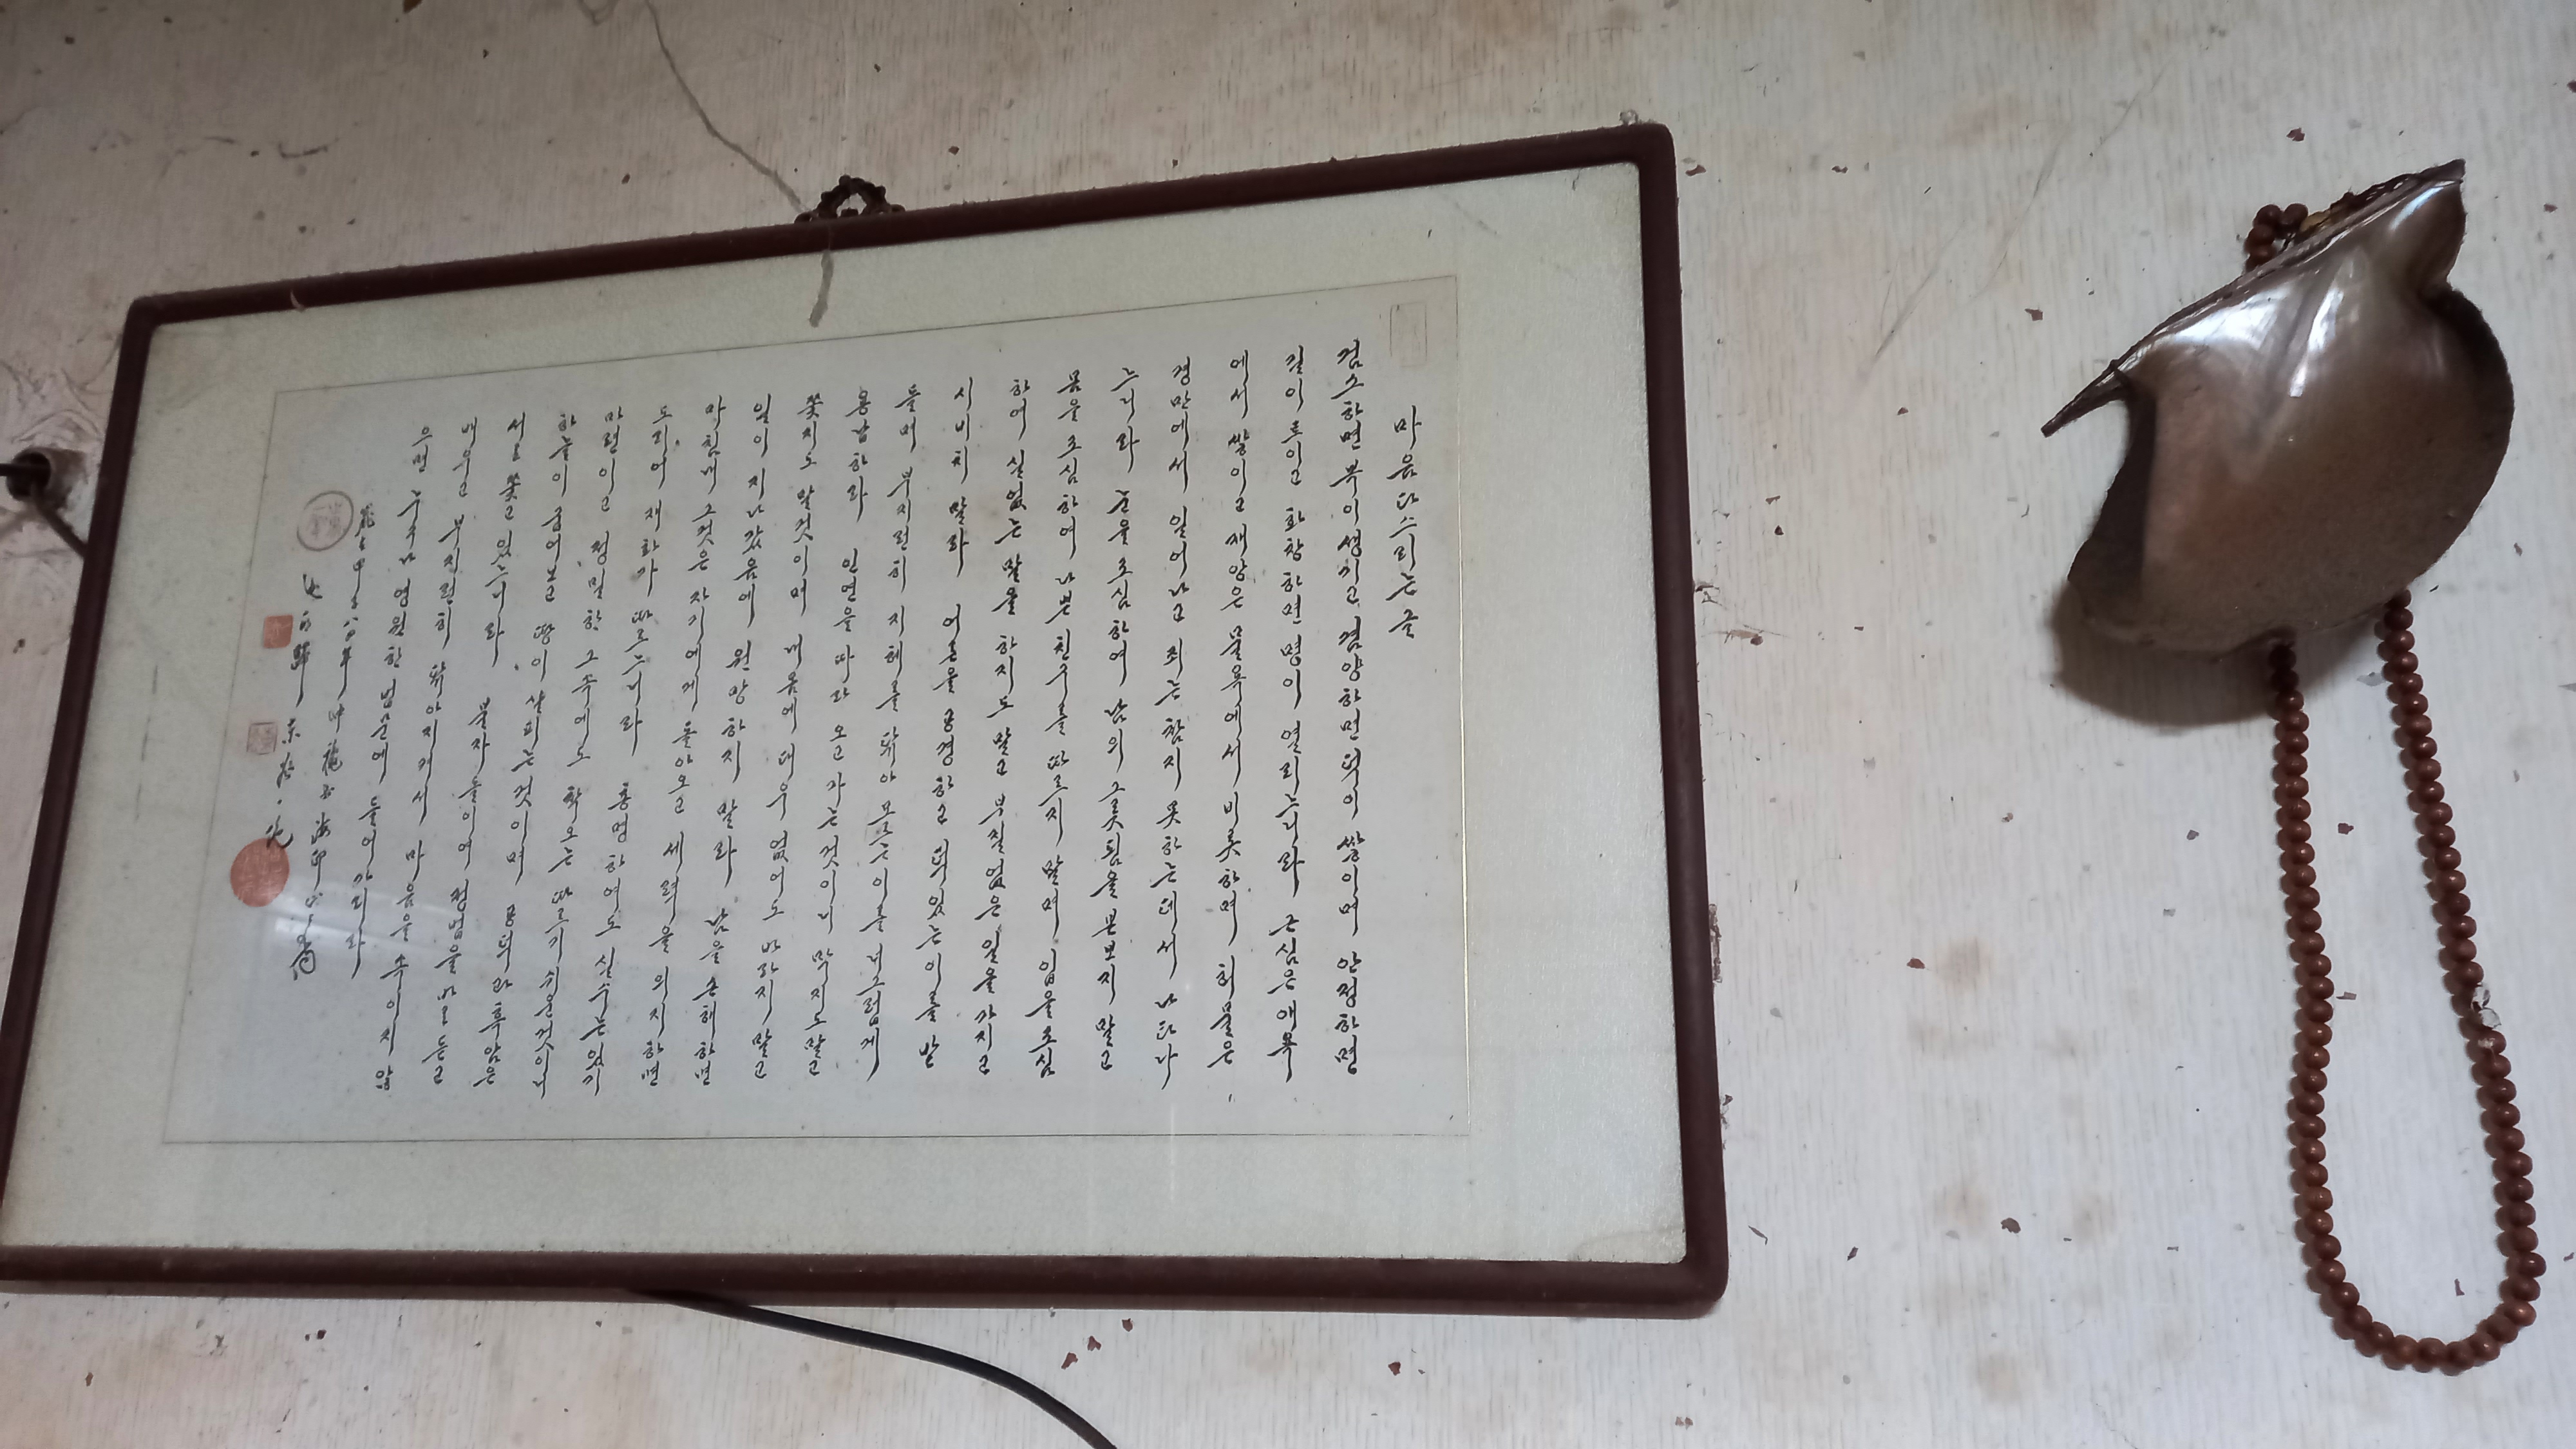 마음다스리는 글
검소하면 복이생기고 겸양하면 덕이 쌓이며 안정하면
길이트이고 화창하면 명이 열리느니라 근심은 애욕
에서 쌓이고 재앙은 물욕에서 비롯하며 허물은
경만에서 일어나고 죄는 참지 못하는데서 나타나
느니라 눈을 조심하여 남의 그릇됨을 본보지 말고
몸을 조심하여 나쁜 친구를 따르지 말며 입을조심
하여 실없는 말을 하지도 말고 부질없은 일을 가지고
시비치 말라 어른을 공경하고 덕있는 이를 받
들며 부지런히 지혜를 닦아 모르는이를 너그럽게
용납하라 인연을 따라 오고 가는것이니 막지도말고
쫓지도 말것이며 개움에 대우 없어도 바라지 말고
일이 지나갔음에 원망하지 말라 남을 손해하면
마침내 그것은 자기에게 돌아오고 세력을 의지하면
도리어 재화가 따르느니라 총명하여도 실수는있기
마련이고 정밀한 그속에도 착오는 따르기 쉬운것이니
하늘이 굽어보고 땅이 살피는것이며 공덕과 후앙은
서로 쫓고 있느니라 불자들이여 정법을 바로 듣고
배우고 부지런히 닦아지켜서 마음을 속이지 않
으면 누구나 영원한 법순에 들어가리라